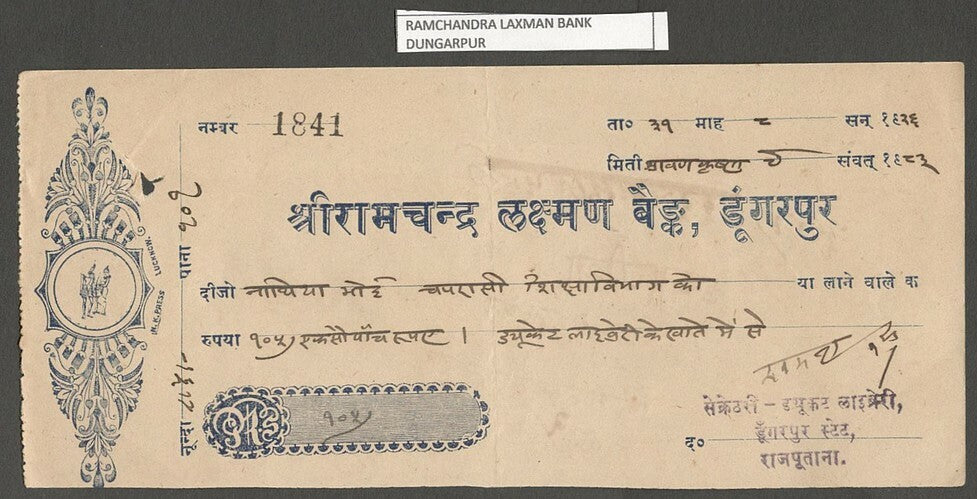 RAMCHANDRA LAXMAN BANK
DUNGARPUR
नम्बर 1841
ता० ३१ माह ८ सन् १९२६
मिती श्रावण कृष्णा संवत् १९८३
श्रीरामचन्द्र लक्ष्मण बैङ्क, डूंगरपुर
दीजो नाथिया भोई चपरासी शिक्षाविभाग को या लाने वाले क
रुपया १०५) एकसौ पाँच रुपए । ड्यूकेट लाइब्रेरी के खाते में से
१०५)
सेक्रेटरी – डयूकट लाइब्रेरी,
डूँगरपुर स्टेट,
द० राजपूताना.
पाना
नून्दा
M.K.PRESS LUCKNOW.